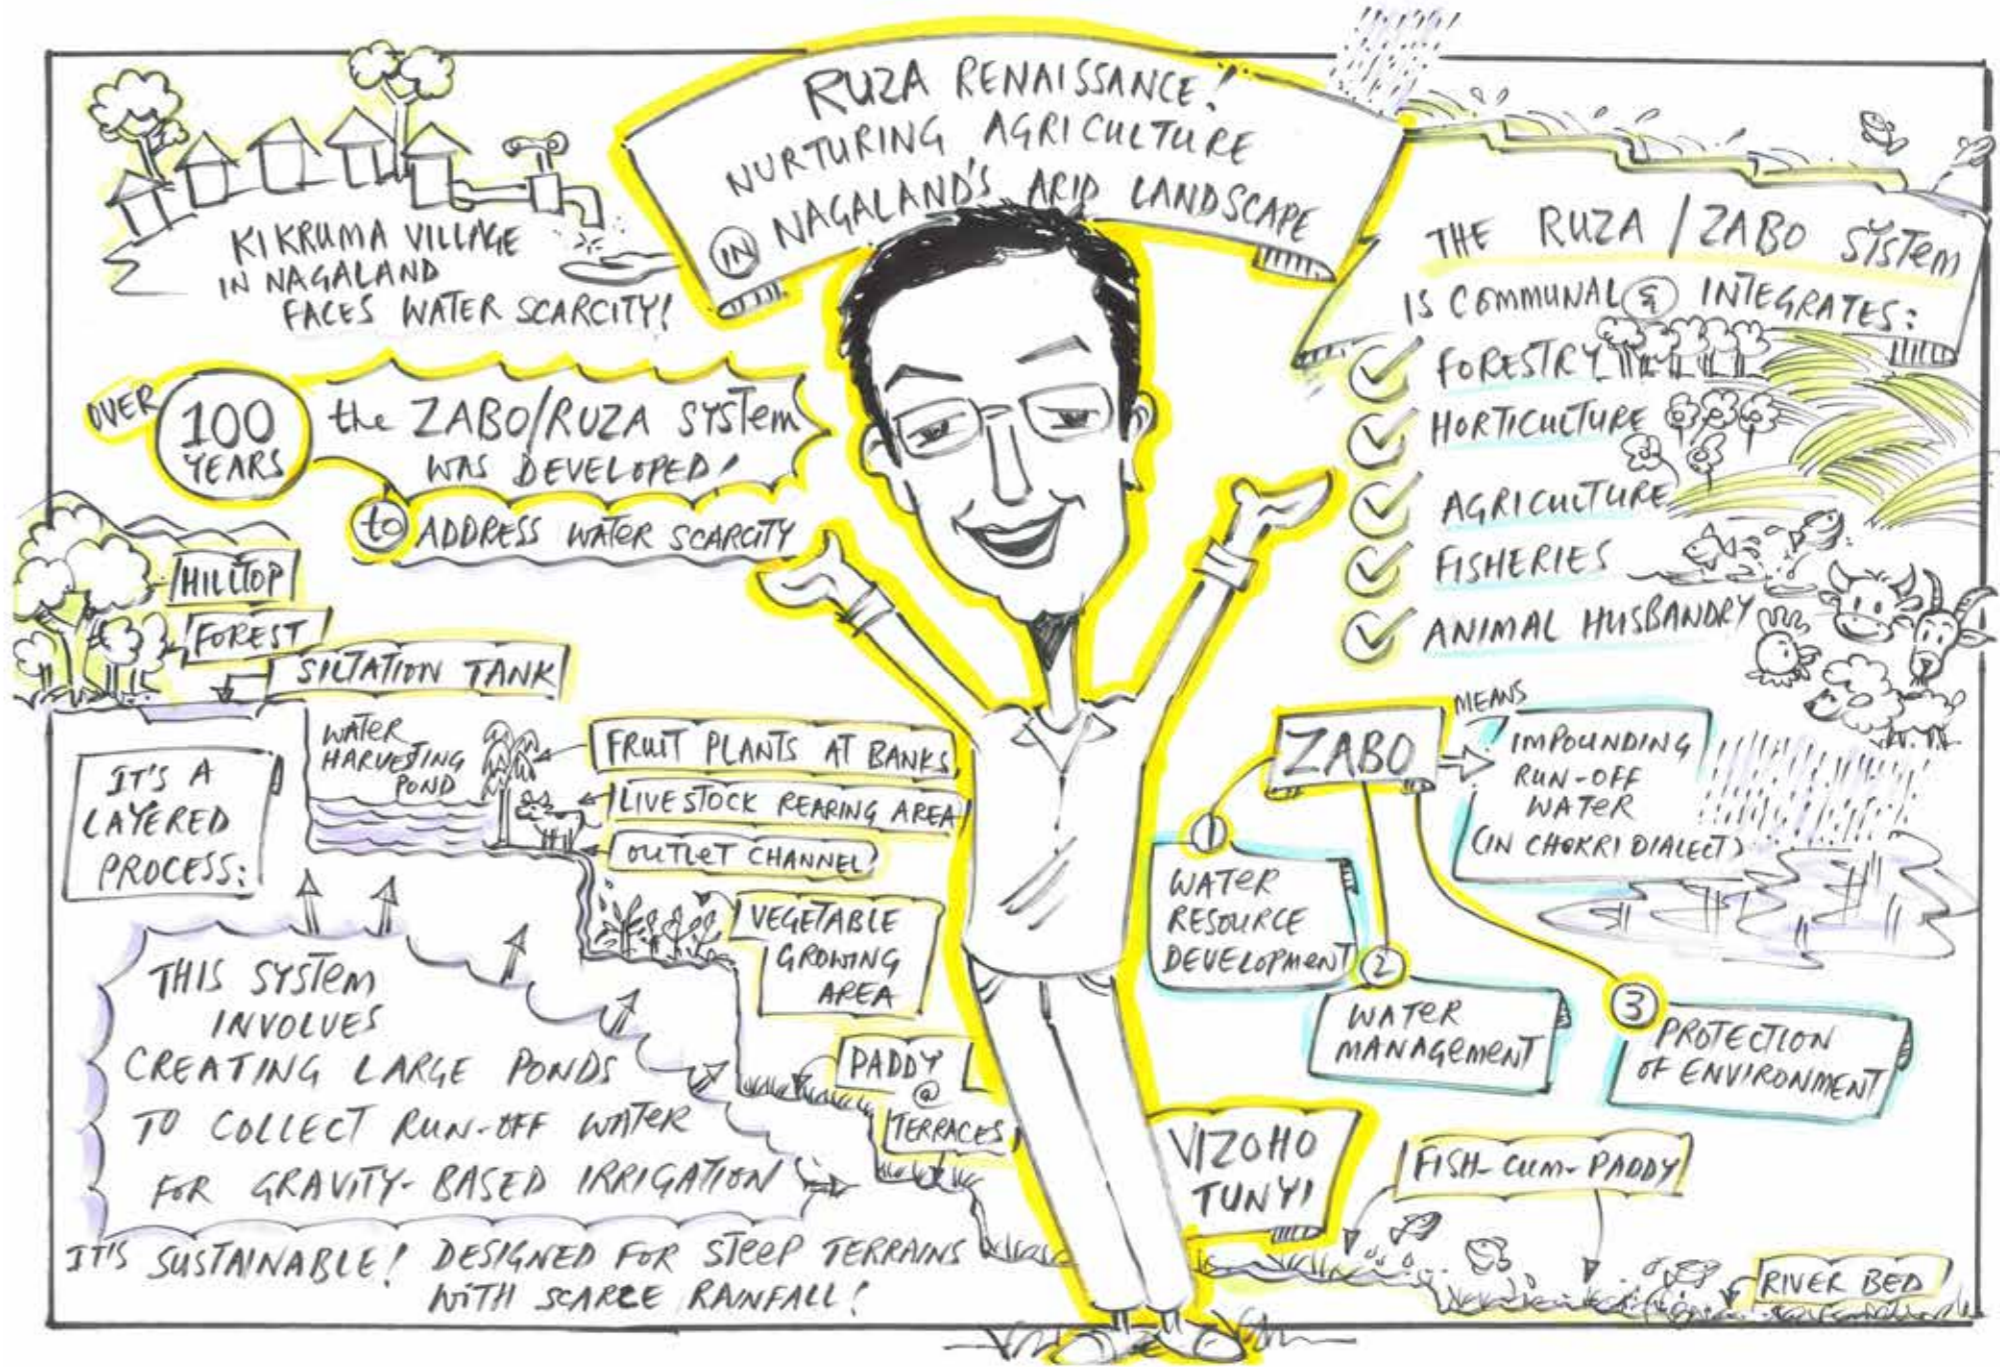 RUZA RENAISSANCE!
NURTURING AGRICULTURE
IN NAGALAND'S ARID LANDSCAPE
KIKRUMA VILLAGE
IN NAGALAND
FACES WATER SCARCITY!
OVER
100
YEARS
the ZABO/RUZA SYSTEM
WAS DEVELOPED!
to ADDRESS WATER SCARCITY
HILLTOP
FOREST
SILTATION TANK
WATER
HARVESTING
POND
FRUIT PLANTS AT BANKS
LIVESTOCK REARING AREA
OUTLET CHANNEL
VEGETABLE
GROWING
AREA
PADDY
@
TERRACES
IT'S A
LAYERED
PROCESS:
THIS SYSTEM
INVOLVES
CREATING LARGE PONDS
TO COLLECT RUN-OFF WATER
FOR GRAVITY-BASED IRRIGATION
IT'S SUSTAINABLE! DESIGNED FOR STEEP TERRAINS
WITH SCARCE RAINFALL!
THE RUZA / ZABO SYSTEM
IS COMMUNAL & INTEGRATES:
FORESTRY
HORTICULTURE
AGRICULTURE
FISHERIES
ANIMAL HUSBANDRY
ZABO
MEANS
IMPOUNDING
RUN-OFF
WATER
(IN CHOKRI DIALECT)
1
WATER
RESOURCE
DEVELOPMENT
2
WATER
MANAGEMENT
3
PROTECTION
OF ENVIRONMENT
VIZOHO
TUNYI
FISH-CUM-PADDY
RIVER BED